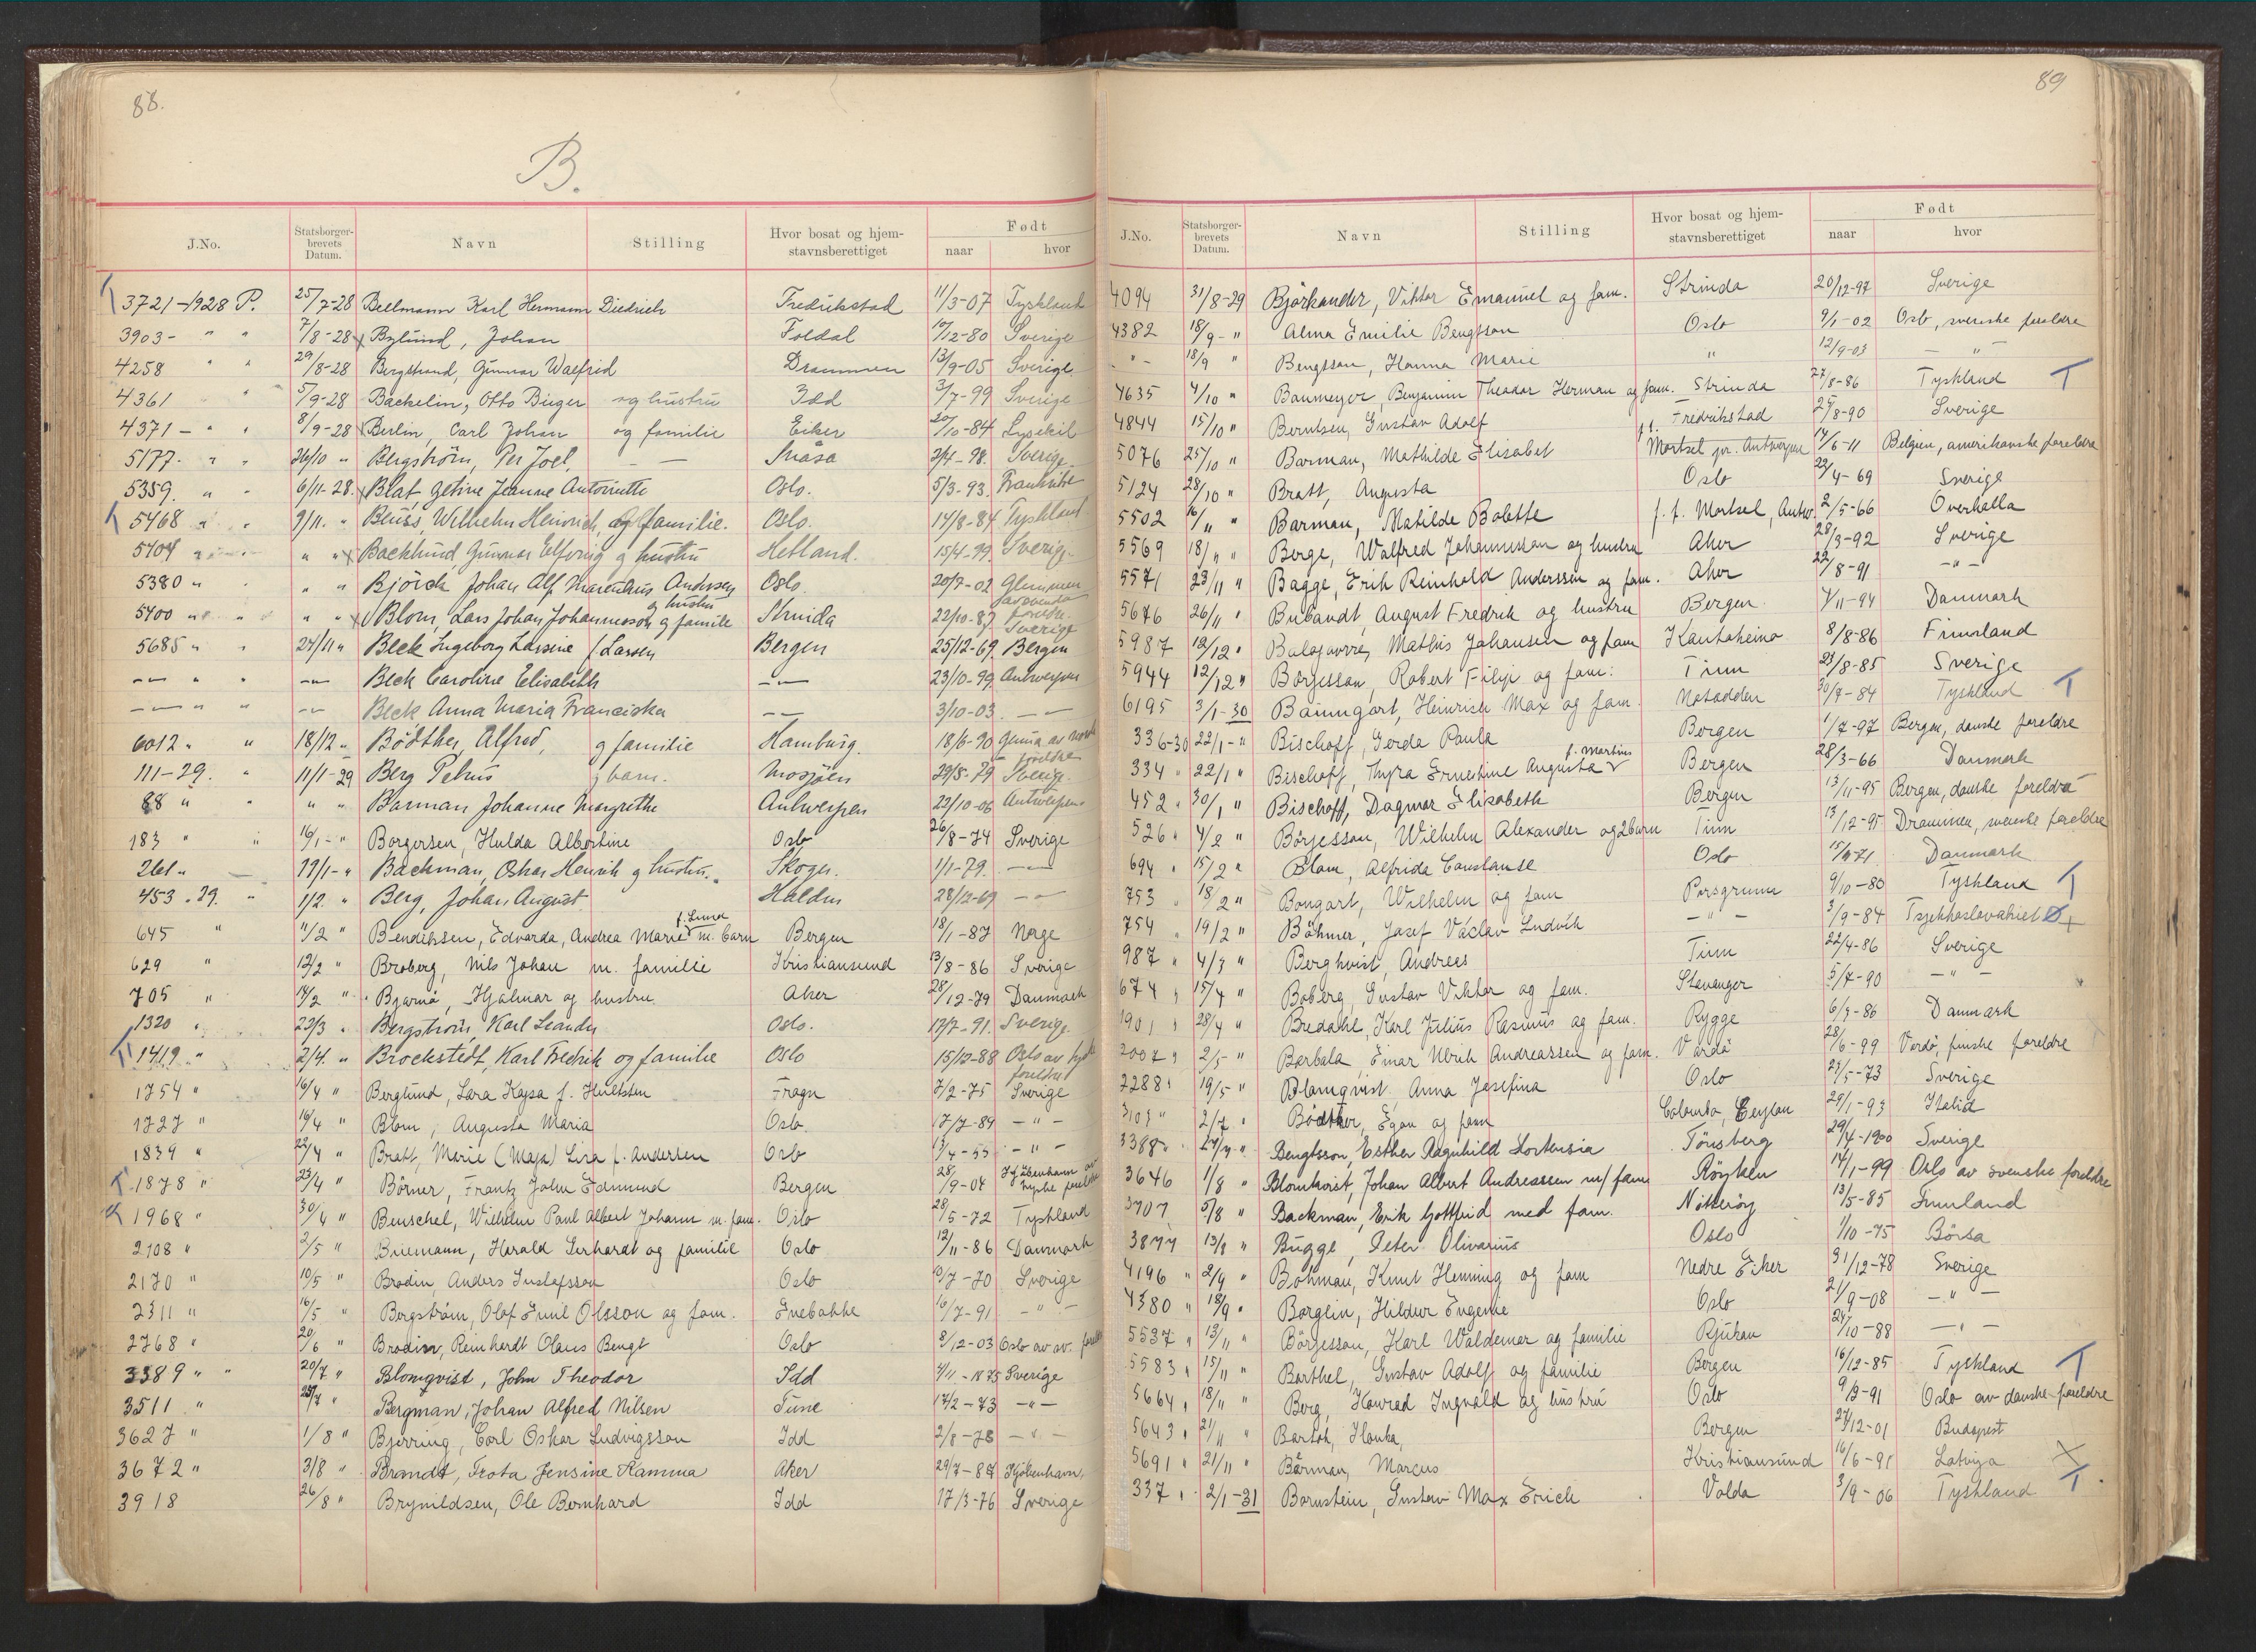 88.
B.
J.No. Statsborger-brevets Datum. Navn Stilling Hvor bosat og hjem-stavnsberettiget Født naar hvor
3721-1928 P. 25/7-28 Bellmann Karl Hermann Diedrich Fredrikstad 11/3-07 Tyskland
3903- " " 7/8-28 Bylund, Johan Foldal 10/12-80 Sverige
4258 " " 29/8-28 Bergstrand, Gunnar Walfrid Drammen 13/9-05 Sverige.
4361 " 5/9-28 Backelin, Otto Birger og hustru Idd 3/7-99 Sverige
4371- " " 8/9-28 Berlin, Carl Johan og familie Eiker 20/10-84 Lysekil
5177- " " 26/10 " Bergström, Per Joel, — — Snåsa 2/4-98. Sverige
5359. " " 6/11-28. Blat Getine Jeanne Antoinette Oslo. 5/3-93. Frankrike
T 5468 " " 9/11. " Beuss, Wilhelm Heinrich, og familie. Oslo. 14/8-84 Tyskland
5404 " " " " Backlund, Gunnar Elfving g hustru Hetland. 15/4-99. Sverige
5380 " " " " Björck Johan Alf Marentius Andersen Oslo. 20/7-02 Glemmen
g hustru
5400 " " " " Blom, Lars Johan Johannesson g familie Strinda 22/10-87 Sverige
5685 " " 24/11 " Beck Ingeborg Lassine f Larsen Bergen 25/12-69. Bergen
— " " — Beck Caroline Elisabeth — 23/10-99. Antwerpen
— " " — Beck Anna Maria Franciska — 3/10-03. —
6012 " " 18/12 " Bödther, Alfred, g familie Hamburg. 18/6-90 Genua av norske foreldre
111-29. " 11/1-29 Berg Petrus g barn. Mosjøen 29/5-79 Sverige.
88 " " " " Barman Johanne Margrethe Antwerpen 22/10-06 Antwerpen
183 " " 16/1- " Borgersen, Hulda Albertine Oslo 26/8-74 Sverige
261 " — 17/1- " Backman, Oskar Henrik g hustru. Skoger. 1/1-79. —
453. 29. " 1/2. " Berg, Johan August Halden 28/12-69 —
f. Lund
645 " 11/2 " Bendiksen, Edvarda, Andrea Marie m. barn Bergen 18/1-87 Norge
629 " 12/2 " Broberg, Nils Johan m. familie Kristiansund 13/8-86 Sverige
705 " 14/2 " Bjarnø, Hjalmar og hustru Aker 28/12-79 Danmark
1320 " 22/3 " Bergström, Karl Leander Oslo. 17/7-91. Sverige
T 1419 " 2/4. " Brockstedt, Karl Fredrik og familie Oslo 15/12-88 Oslo av tyske foreldre
1754 " 16/4 " Berglund, Lara Kajsa f. Hultsten Fragn 7/2-75 Sverige
1727 " 16/4 " Blom, Augusta Maria Oslo. 17/7-89 — " —
1839 " 22/4 " Bratt, Marie (Maja) Lisa f. Andersen Oslo 13/4-53 — " —
T 1878 " 23/4 " Börner, Frantz John Edmund Bergen 28/9-04 Kjøbenhavn av tyske foreldre
1968 " 30/4 " Benschel, Wilhelm Paul Albert Johann m. fam. Oslo 28/5-72 Tyskland
2108 " 2/5 " Briemann, Harald Gerhardt og familie Oslo 12/11-86 Danmark
2170 " 10/5 " Brodin, Anders Gustafsson Oslo 10/7-70 Sverige
2311 " 16/5 " Bergström, Olof Emil Olsson og fam. Enebakke 16/7-91 — " —
2768 " 20/6 " Brodin, Reinhardt Olaus Bengt Oslo 8/12-03 Oslo av sv. foreldre
3389 " " 20/7 " Blomqvist, John Theodor Idd 4/11-1875 Sverige
3511 " 25/7 " Bergman, Johan Alfred Nilsen Tune 17/2-73 — " —
3627 " 1/8 " Bjerring, Carl Oskar Ludvigsson Idd 2/8-78 — " —
3672 " 3/8 " Brandt, Trota Jensine Kamma Aker 29/7-84 Kjøbenhavn.
3918 26/8 " Brynildsen, Ole Bernhard Idd 17/3-76 Sverige
89
J.No. Statsborger-brevets Datum. Navn Stilling Hvor bosat og hjem-stavnsberettiget Født naar hvor
4094 31/8-29 Björkander, Viktor Emanuel og fam. Strinda 20/12-97 Sverige
4382 18/9- " Alma Emilie Bengtson Oslo 9/1-02 Oslo, svenske foreldre
" - 18/9 " Bengtsson, Hanna Marie " 12/9-03 — " —
4635 4/10 " Baumeyer, Benjamin Theodor Herman og fam. Strinda 27/8-86 Tyskland T
4844 15/10 " Berntsen, Gustav Adolf Fredrikstad 25/8-90 Sverige
5076 25/10 " Barman, Mathilde Elisabet f.t. Mortsel pr. Antwerpen 14/6-11 Belgien, amerikanske foreldre
5124 28/10 " Bratt, Augusta Oslo 22/4-69 Sverige
5502 16/11 " Barman, Matilde Bolette f.t. Mortsel, Antw. 2/5-66 Overhalla
5569 18/11 " Berge, Walfred Johannesson og hustru Aker 28/3-92 Sverige
5571 23/11 " Bagge, Erik Reinhold Anderssen og fam. Aker 22/8-91 — " —
5676 26/11 " Bubandt, August Fredrik og hustru Bergen 7/11-94 Danmark
5987 12/12 " Balojavvre, Mathis Johansen og fam Kautokeino 8/8-86 Finnland
5944 12/12 " Börjesson, Robert Filip og fam: Tinn 23/8-85 Sverige
6195 3/1-30 Baumgart, Heinrich Max og fam. Notodden 30/7-84 Tyskland T
336-30 22/1- " Bischoff, Gerda Paula Bergen 1/7-97 Bergen, danske foreldre
f. Martins
334 " 22/1 " Bischoff, Thyra Ernestine Augusta Bergen 28/3-66 Danmark
452 " 30/1 " Bischoff, Dagmar Elisabeth Bergen 13/11-95 Bergen, danske foreldre
526 " 4/2 " Börjesson, Wilhelm Alexander og 2 barn Tinn 13/12-95 Drammen, svenske foreldre
694 " 15/2 " Blom, Alfrida Constanse Oslo Danmark
753 " 18/2 " Bongart, Wilhelm og fam Porsgrunn 9/10-80 Tyskland T
754 " 19/2 " Böhmer, Josef Václav Ludvik — " — 3/9-84 Tsjekkoslovakiet
987 " 4/3 " Berghvist, Andreas Tinn 22/4-86 Sverige
674 " 15/4 " Boberg, Gustav Viktor og fam. Stavanger 5/7-90 — " —
1901 " 28/4 " Bredahl, Karl Julius Rasmus og fam. Rygge 6/9-86 Danmark
2007 " 2/5- " Barbala, Einar Ulrik Andreassen og fam. Vardö 28/6-99 Vardö, finske foreldre
2288 " 19/5 " Blomqvist, Anna Josefina Oslo 23/5-73 Sverige
3103 " 2/7 " Bödtker, Egon og fam Colombo, Ceylon 29/1-93 Italia
3388 " Bengtsson, Esther Ragnhild Hortensia Tönsberg 29/4-1900 Sverige
3646 1/8 " Blomkvist, Johan Albert Andreassen m/ fam Röyken 14/1-99 Oslo av svenske foreldre
3707 5/8 " Backman, Erik Gottfrid med fam. Nøtterøy 13/5-85 Finnland
3877 13/8 " Bugge, Peter Olivarius Oslo 1/10-75 Börsa
4196 " 2/9 " Bohman, Knut Henning og fam Nedre Eiker 31/12-78 Sverige
4380 " 18/9 " Borglin, Hildur Eugenie Oslo 21/9-08 — " —
5537 " 13/11 " Börjesson, Karl Waldemar og familie Rjukan 24/10-88 — " —
5583 " 15/11 " Barthel, Gustav Adolf og familie Bergen 16/12-85 Tyskland T
5664 " 18/11 " Berg, Konrad Ingvald og hustru Oslo 9/3-91 Oslo av danske foreldre
5643 " 21/11 " Bartok, Ilonka, Bergen 27/12-01 Budapest
5691 " 21/11 " Bärman, Marcus Kristiansund 16/6-91 Latvija
337 " 2/1-31 Bornstein, Gustav Max Erich Volda 3/9-06 Tyskland T